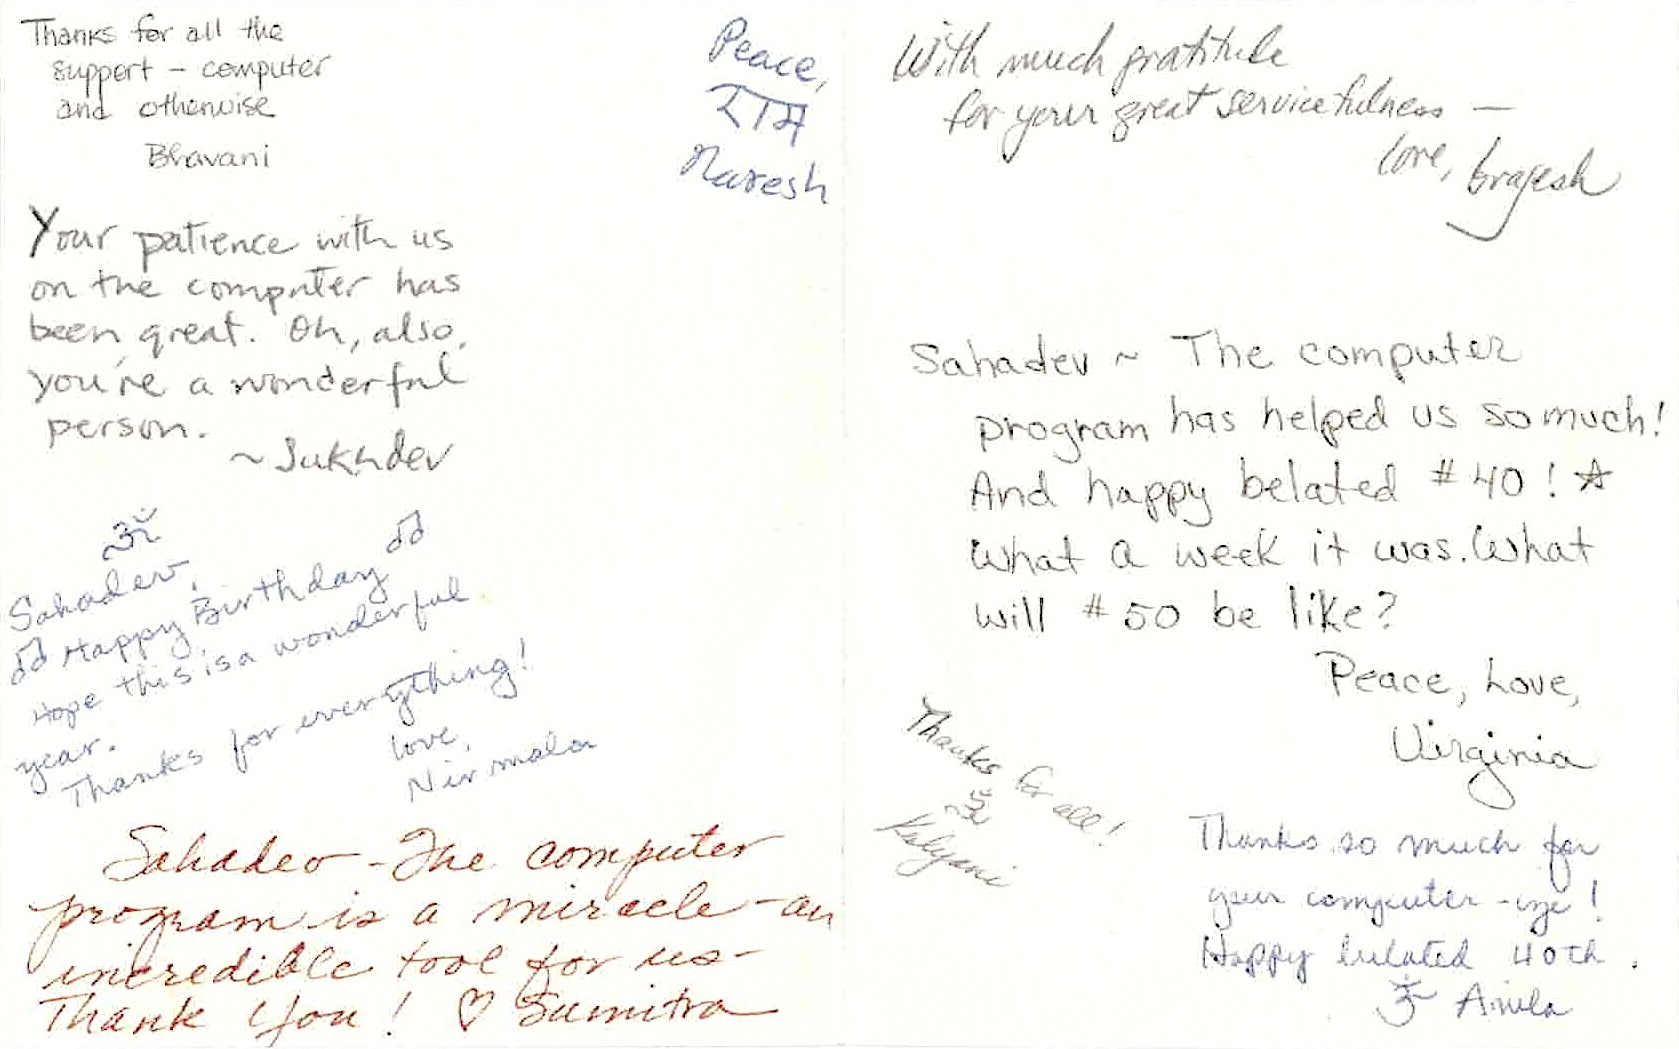 Thanks for all the
support – computer
and otherwise
Bhavani
Your patience with us
on the computer has
been great. Oh, also,
you're a wonderful
person.
~ Sukhdev
ॐ
Sahadev,
♫ Happy Birthday ♫
Hope this is a wonderful
year.
Thanks for everything!
love,
Nirmala
Sahadev – The computer
program is a miracle – an
incredible tool for us –
Thank You! ♡ Sumitra
Peace,
राम
Naresh
With much gratitude
for your great servicefulness —
love, brajesh
Sahadev ~ The computer
program has helped us so much!
And happy belated #40! ☆
What a week it was. What
will #50 be like?
Peace, Love,
Virginia
Thanks for all!
ॐ
Kalyani
Thanks so much for
your computer-
Happy belated 40th.
ॐ Anila